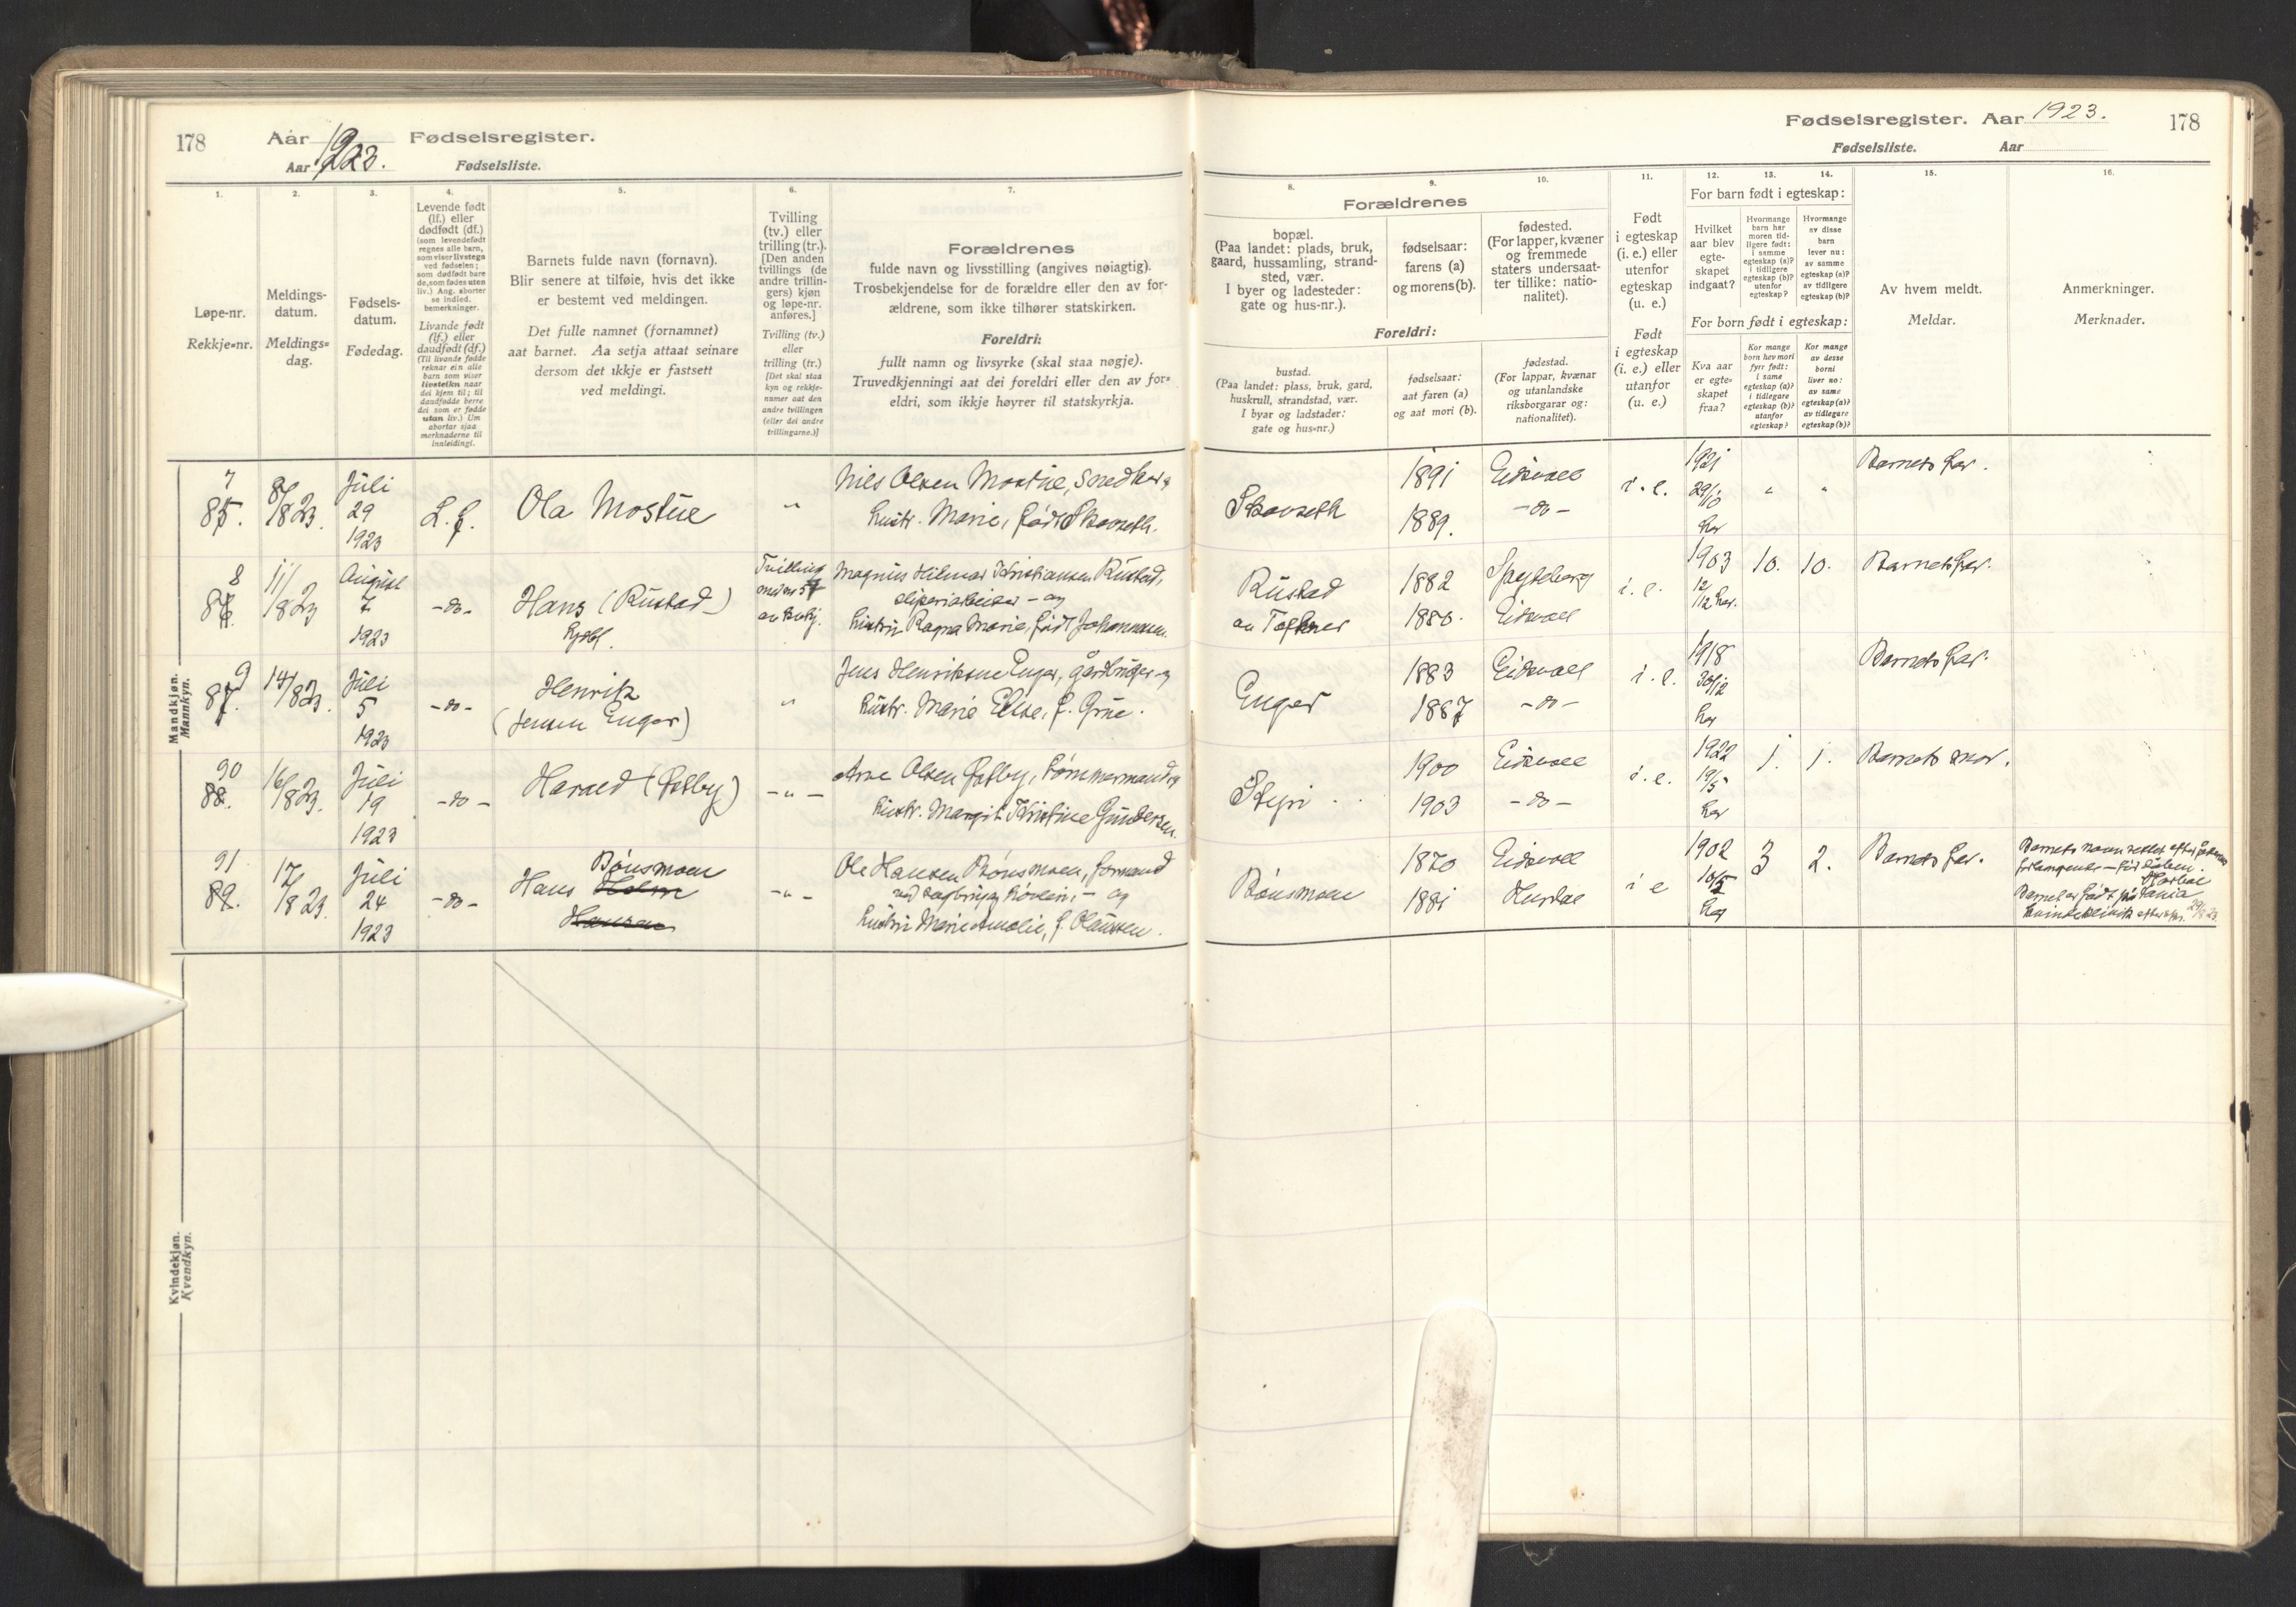 178 Aar 1923. Fødselsregister.
Aar Fødselsliste.
1.
Løpe-nr.
Rekkje-nr.
2.
Meldings-
datum.
Meldings-
dag.
3.
Fødsels-
datum.
Fødedag.
4.
Levende født
(lf.) eller
dødfødt (df.)
(som levendefødt
regnes alle barn,
som viser livstegn
ved fødselen;
som dødfødt bare
de, som fødes uten
liv.) Ang. aborter
se indled.
bemerkninger.
Livande født
(lf.) eller
daudfødt (df.)
(Til livande fødde
reknar ein alle
barn som viser
livsteikn naar
dei kjem til; til
daudfødde berre
dei som er fødde
utan liv.) Um
abortar sjaa
merknaderne til
innleidingi.
5.
Barnets fulde navn (fornavn).
Blir senere at tilføie, hvis det ikke
er bestemt ved meldingen.
Det fulle namnet (fornamnet)
aat barnet. Aa setja attaat seinare
dersom det ikkje er fastsett
ved meldingi.
6.
Tvilling
(tv.) eller
trilling (tr.).
[Den anden
tvillings (de
andre trillin-
gers) kjøn
og løpe-nr.
anføres.]
Tvilling (tv.)
eller
trilling (tr.)
[Det skal staa
kyn og rekkje-
numer aat den
andre tvillingen
(eller dei andre
trillingarne.)]
7.
Forældrenes
fulde navn og livsstilling (angives nøiagtig).
Trosbekjendelse for de forældre eller den av for-
ældrene, som ikke tilhører statskirken.
Foreldri:
fullt namn og livsyrke (skal staa nøgje).
Truvedkjenningi aat dei foreldri eller den av for-
eldri, som ikkje høyrer til statskyrkja.
Mandkjøn.
Mannkyn.
7
85.
8/
1823.
Juli
29
1923
L.f.
Ola Mostue
"
Nils Olsen Mostue, snedker og
hustr. Marie, født Skovseth.
8
86.
11/
1823
August
7
1923
-do-
Hans (Rustad)
hjdbf.
Tvilling
Magnus Hilmar Kristiansen Rustad,
sliperiarbeider - og
hustru Ragna Marie, født Johannesen.
9
87.
14/823.
Juli
5
1923
-do-
Henrik
(Jensen Enger)
"
Jens Henriksen Enger, gårdbruger og
hustr. Marie Elise, f. Grue.
90
88.
16/
1823.
Juli
19
1923
-do-
Harald (Østby)
-"-
Arne Olsen Østby, tømmermand og
hustr. Margit Kristine Gundersen
91
89.
17/
1823.
Juli
24
1923
-do-
Bønsmoen
Hans Holm
Hansen
-"-
Ole Hansen Bønsmoen, formand
- og
hustru Marie Amalie, f. Olaussen.
Kvindekjøn.
Kvendkyn.
Fødselsregister. Aar 1923. 178
Fødselsliste. Aar
8.
Forældrenes
bopæl.
(Paa landet: plads, bruk,
gaard, hussamling, strand-
sted, vær.
I byer og ladesteder:
gate og hus-nr.).
Foreldri:
bustad.
(Paa landet: plass, bruk, gard,
huskrull, strandstad, vær.
I byar og ladstader:
gate og hus-nr.)
9.
fødselsaar:
farens (a)
og morens (b).
fødselsaar:
aat faren (a)
og aat mori (b).
10.
fødested.
(For lapper, kvæner
og fremmede
staters undersaat-
ter tillike: natio-
nalitet).
fødestad.
(For lappar, kvænar
og utanlandske
riksborgarar og:
nationalitet).
11.
Født
i egteskap
(i. e.) eller
utenfor
egteskap
(u. e.)
Født
i egteskap
(i. e.) eller
utanfor
(u. e.)
For barn født i egteskap:
12.
Hvilket
aar blev
egte-
skapet
indgaat?
13.
Hvormange
barn har
moren tid-
ligere født:
i samme
egteskap (a)?
i tidligere
egteskap (b)?
utenfor
egteskap?
14.
Hvormange
av disse
barn
lever nu:
av samme
egteskap (a)?
av tidligere
egteskap (b)?
For born født i egteskap:
Kva aar
er egte-
skapet
fraa?
Kor mange
born hev mori
fyrr født:
i same
egteskap (a)?
i tidlegare
egteskap (b)?
utanfor
egteskap?
Kor mange
av desse
borni
liver no:
av same
egteskap (a)?
av tidlegare
egteskap (b)?
15.
Av hvem meldt.
Meldar.
16.
Anmerkninger.
Merknader.
Skovseth
1891
1889.
Eidsvoll
-do-
i.e.
1921
29/10
her
"
"
Barnets far.
Rustad
1882
1880.
Spydeberg
Eidsvoll
i.e.
1903
12/12 her.
10.
10.
Barnets far.
Enger
1883
1887
Eidsvoll
-do-
i.e.
1918
30/12
her
Barnets far.
Styri
1900
1903
Eidsvoll
-do-
i.e.
1922
19/5
her
1.
1.
Barnets mor.
Bønsmoen
1870
1881
Eidsvoll
Hurdal
i e
1902
10/5
her
3
2.
Barnets far.
Barnets navn rettet efter faderens
forlangende - før dåben.
Barnet er født på
Kvindeklinik